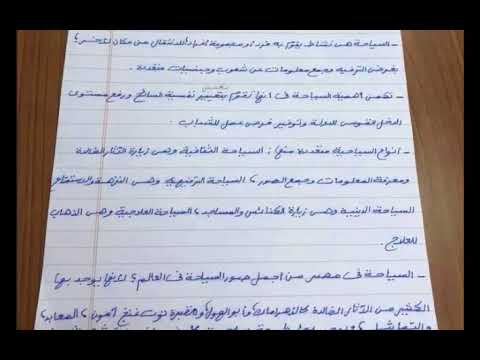 - السياحة هى نشاط يقوم به فرد أو مجموعة أفراد للانتقال من مكان لآخر؛
بغرض الترفيه وجمع معلومات عن شعوب وجنسيات متعددة.
- تكمن أهمية السياحة فى أنها تقوم بتحسين نفسية السائح ورفع مستوى
الدخل القومى للدولة وتوفير فرص عمل للشباب.
- أنواع السياحة متعددة منها: السياحة الثقافية وهى زيارة الآثار الخالدة
ومعرفة المعلومات وجمع الصور، السياحة الترفيهية وهى النزهة والاستمتاع
السياحة الدينية وهى زيارة الكنائس والمساجد، السياحة العلاجية وهى الذهاب
للعلاج.
- السياحة فى مصر من أجمل صور السياحة فى العالم؛ لأنها يوجد بها
الكثير من الآثار الخالدة كالأهرامات، وأبو الهول، ومقبرة توت عنخ آمون، المعابد،
والتماثيل